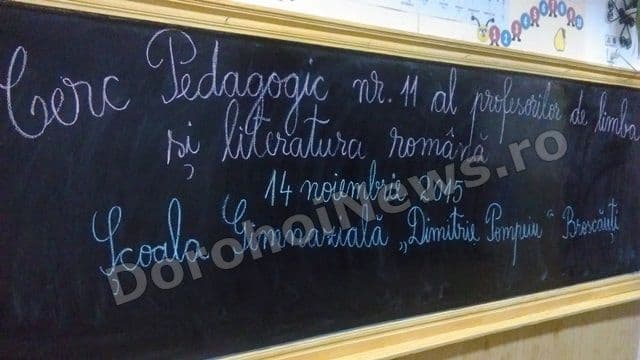 Cerc Pedagogic nr. 11 al profesorilor de limba
și literatura română
14 noiembrie 2015
Școala Gimnazială „Dimitrie Pompeiu“ Broscăuți
DorohoiNews.ro